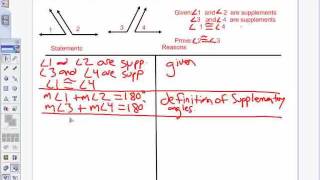 Given ∠1 and ∠2 are supplements
∠3 and ∠4 are supplements
∠1 ≅ ∠4
Prove: ∠2 ≅ ∠3
1 2 3 4
Statements Reasons
∠1 and ∠2 are supp. given
∠3 and ∠4 are supp
∠1 ≅ ∠4
m∠1 + m∠2 = 180° definition of supplementary
m∠3 + m∠4 = 180 angles